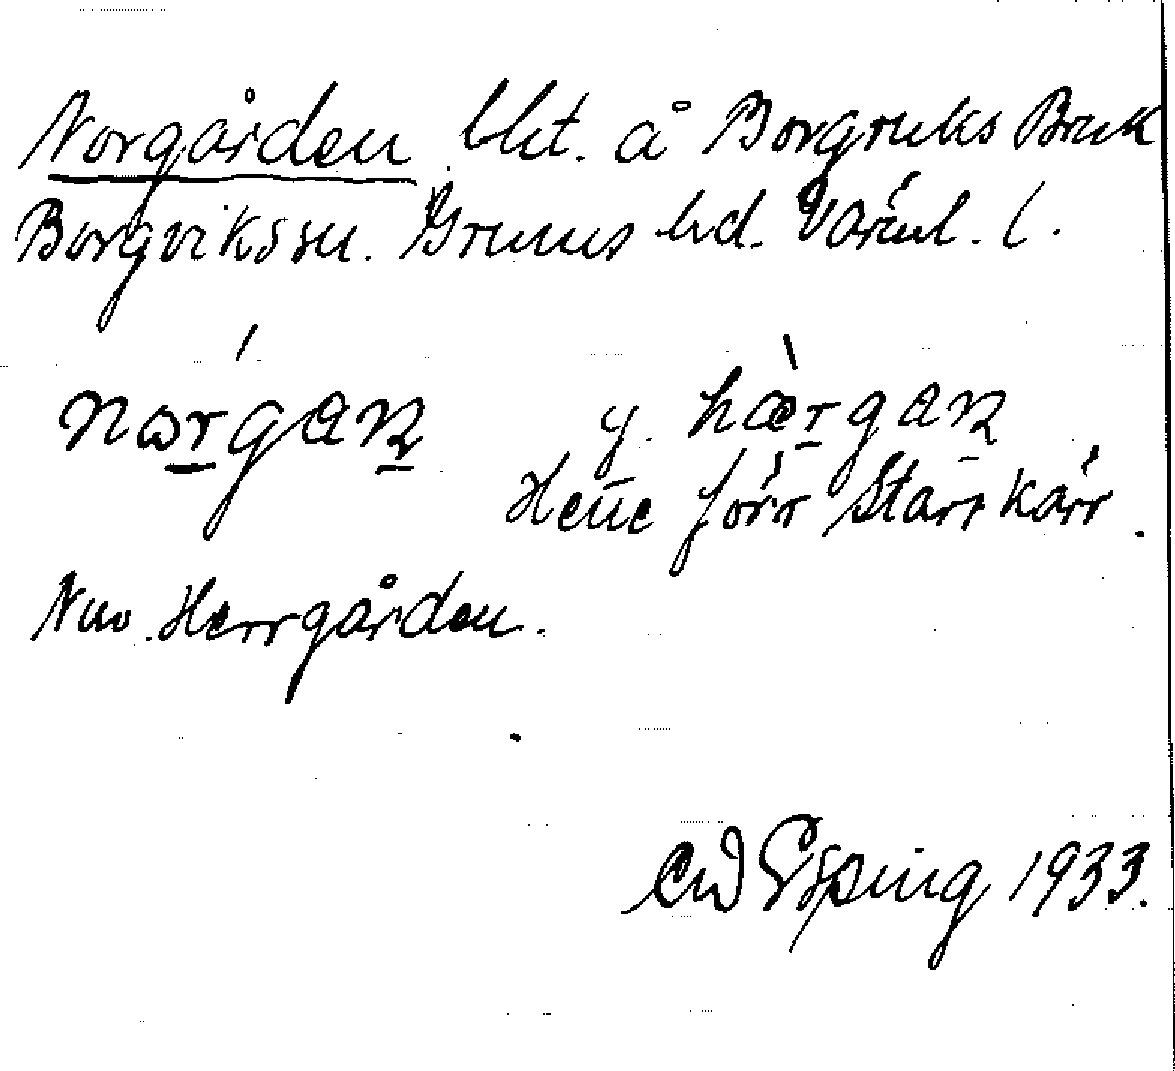 Norgården bbt. å Borgviks Bruk
Borgvikssn. Grums hd. Värml. l.
norgaɳ y. hærgaɳ
förr Starrkärr.
Nuv. Herrgården.
Espling 1933.